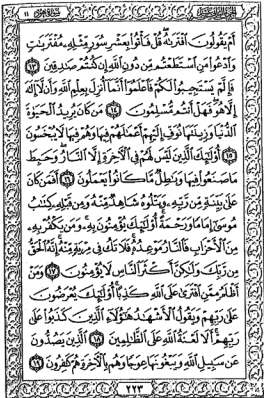 الجزء الثاني عشر سورة هود ١١
أَمْ يَقُولُونَ افْتَرَىٰهُ قُلْ فَأْتُوا بِعَشْرِ سُوَرٍ مِّثْلِهِ مُفْتَرَيَٰتٍ
وَادْعُوا مَنِ اسْتَطَعْتُم مِّن دُونِ اللَّهِ إِن كُنتُمْ صَٰدِقِينَ ١٣
فَإِلَّمْ يَسْتَجِيبُوا لَكُمْ فَاعْلَمُوا أَنَّمَا أُنزِلَ بِعِلْمِ اللَّهِ وَأَن لَّا
إِلَٰهَ إِلَّا هُوَ فَهَلْ أَنتُم مُّسْلِمُونَ ١٤ مَن كَانَ يُرِيدُ الْحَيَوٰةَ
الدُّنْيَا وَزِينَتَهَا نُوَفِّ إِلَيْهِمْ أَعْمَٰلَهُمْ فِيهَا وَهُمْ فِيهَا لَا يُبْخَسُونَ
١٥ أُولَٰئِكَ الَّذِينَ لَيْسَ لَهُمْ فِي الْآخِرَةِ إِلَّا النَّارُ وَحَبِطَ
مَا صَنَعُوا فِيهَا وَبَٰطِلٌ مَّا كَانُوا يَعْمَلُونَ ١٦ أَفَمَن كَانَ
عَلَىٰ بَيِّنَةٍ مِّن رَّبِّهِ وَيَتْلُوهُ شَاهِدٌ مِّنْهُ وَمِن قَبْلِهِ كِتَٰبُ
مُوسَىٰ إِمَامًا وَرَحْمَةً أُولَٰئِكَ يُؤْمِنُونَ بِهِ وَمَن يَكْفُرْ بِهِ
مِنَ الْأَحْزَابِ فَالنَّارُ مَوْعِدُهُ فَلَا تَكُ فِي مِرْيَةٍ مِّنْهُ إِنَّهُ الْحَقُّ
مِن رَّبِّكَ وَلَٰكِنَّ أَكْثَرَ النَّاسِ لَا يُؤْمِنُونَ ١٧ وَمَنْ
أَظْلَمُ مِمَّنِ افْتَرَىٰ عَلَى اللَّهِ كَذِبًا أُولَٰئِكَ يُعْرَضُونَ
عَلَىٰ رَبِّهِمْ وَيَقُولُ الْأَشْهَٰدُ هَٰؤُلَاءِ الَّذِينَ كَذَبُوا عَلَىٰ
رَبِّهِمْ أَلَا لَعْنَةُ اللَّهِ عَلَى الظَّٰلِمِينَ ١٨ الَّذِينَ يَصُدُّونَ
عَن سَبِيلِ اللَّهِ وَيَبْغُونَهَا عِوَجًا وَهُم بِالْآخِرَةِ هُمْ كَٰفِرُونَ ١٩
٢٢٣